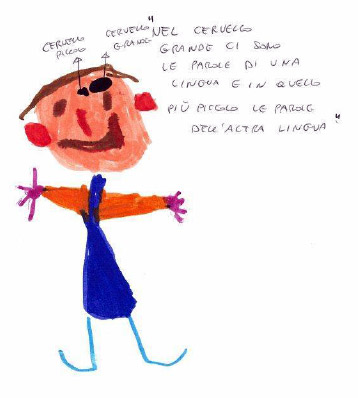 CERVELLO
PICCOLO
CERVELLO
GRANDE
"NEL CERVELLO
GRANDE CI SONO
LE PAROLE DI UNA
LINGUA E IN QUELLO
PIÙ PICCOLO LE PAROLE
DELL'ALTRA LINGUA"